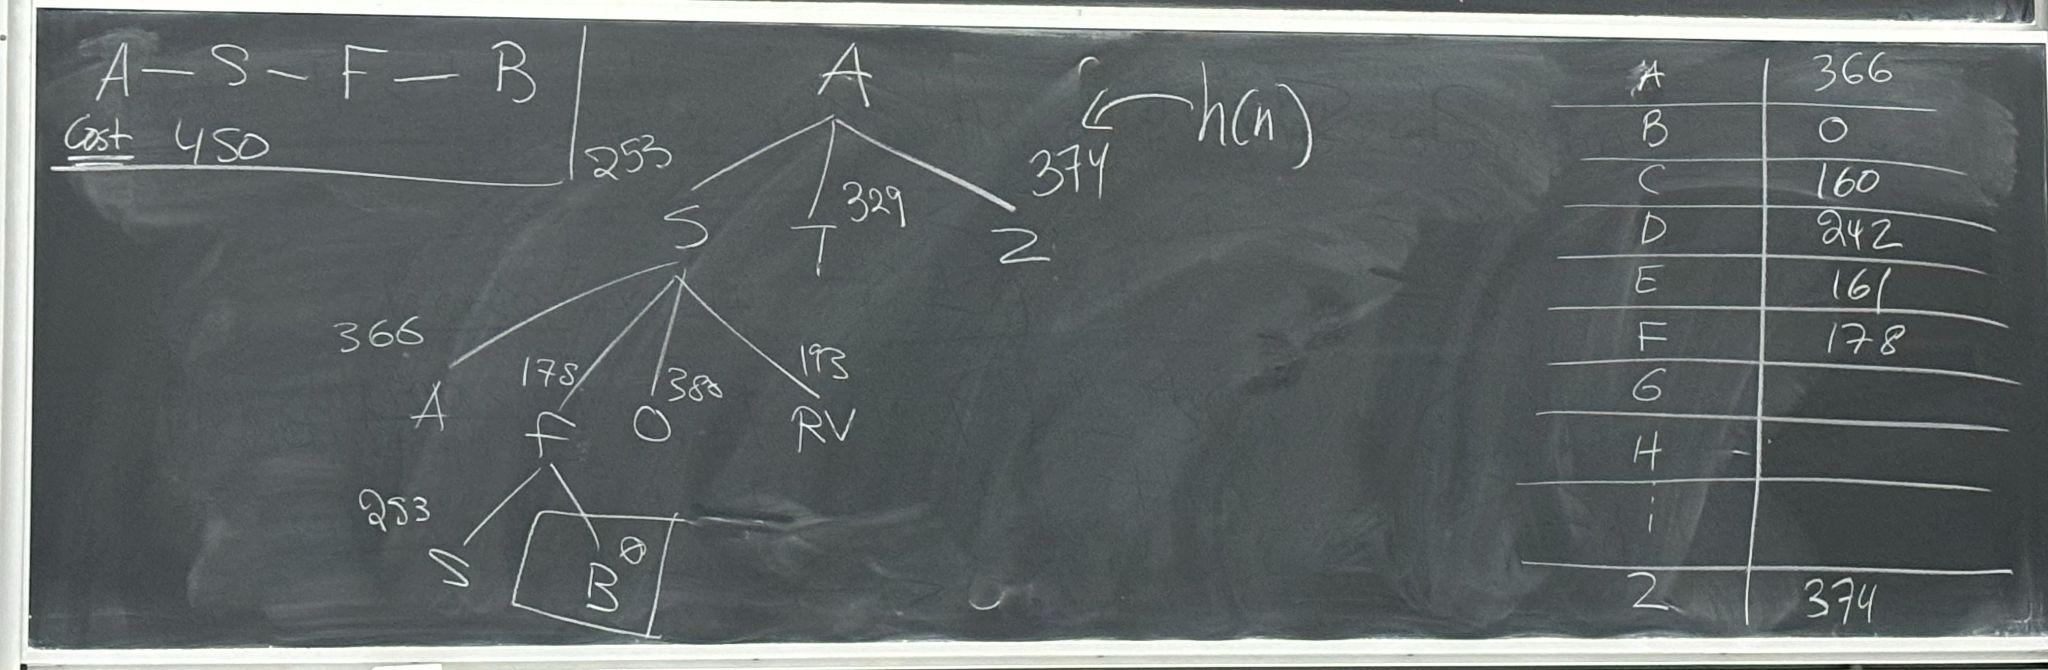 A — S — F — B
Cost 450
A
h(n)
253
329
374
S
T
Z
366
178
380
193
A
F
O
RV
253
S
B 0
A 366
B 0
C 160
D 242
E 161
F 178
G
H
i
Z 374